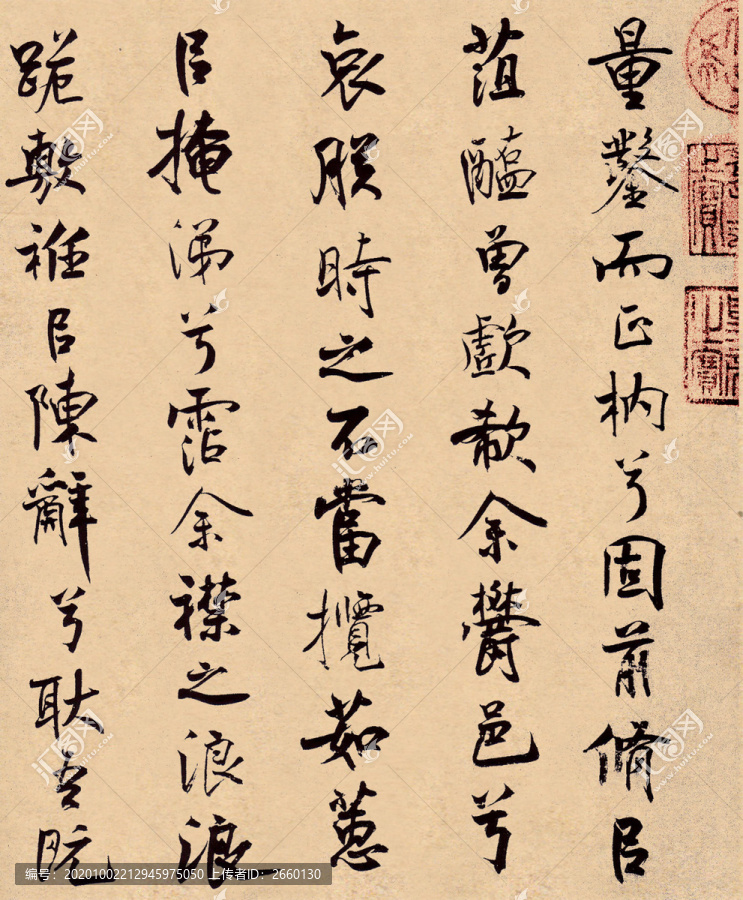 量鑿而正枘兮固前脩㠯
菹醢曾歔欷余鬱邑兮
哀朕時之不當攬茹蕙
㠯掩涕兮霑余襟之浪浪
跪敷衽㠯陳辭兮耿吾既
编号：20201002212945975050 上传者ID：2660130